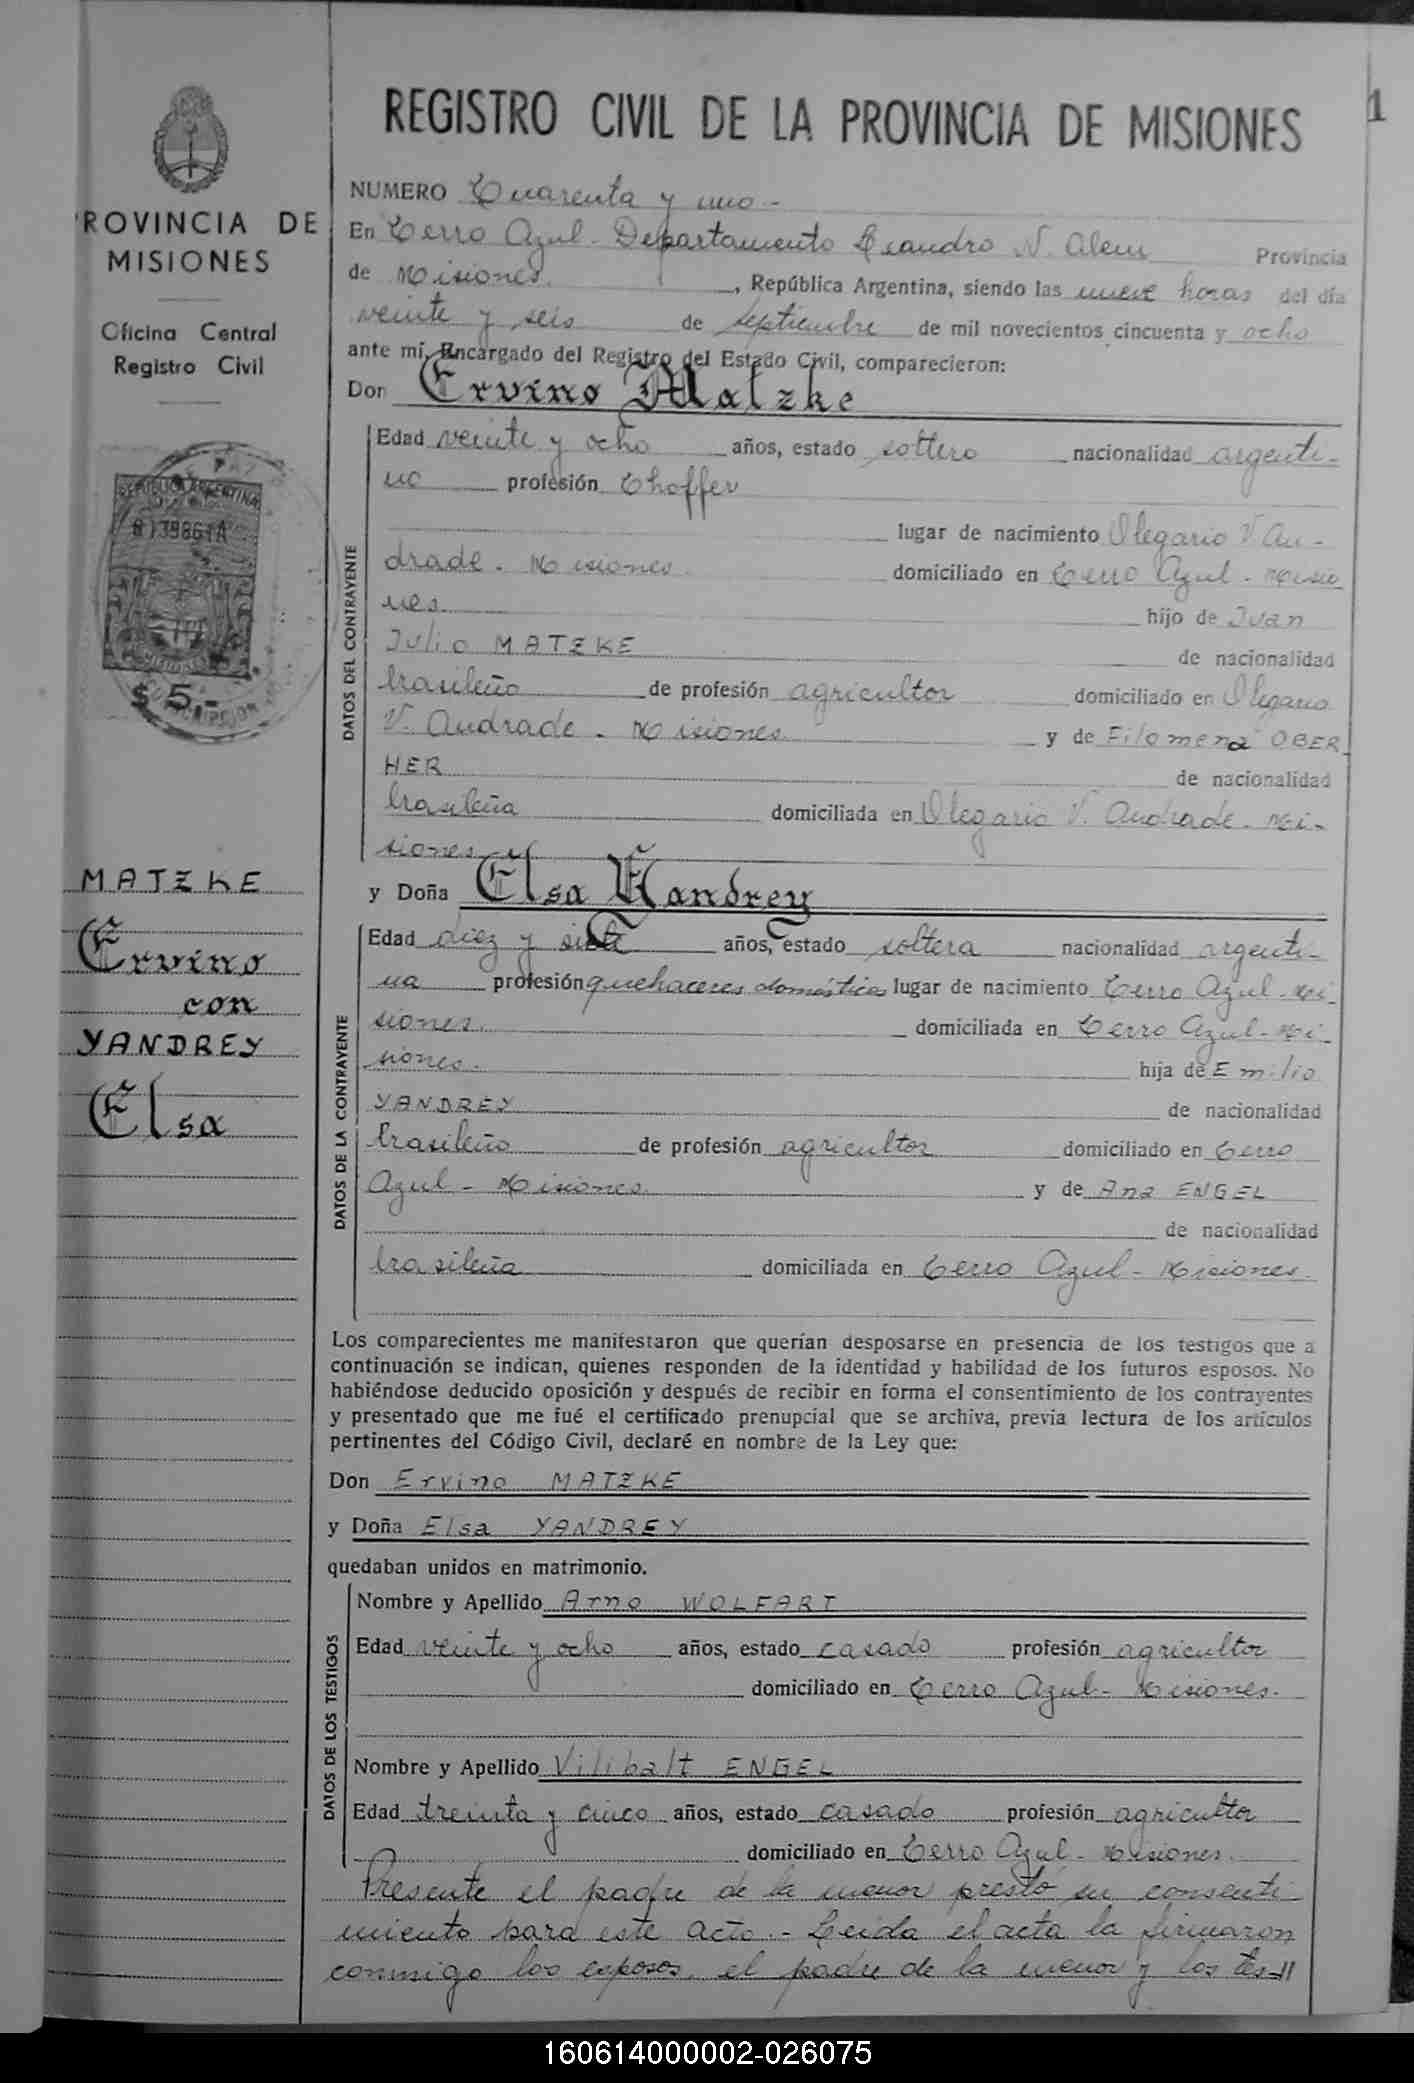 REGISTRO CIVIL DE LA PROVINCIA DE MISIONES
1
PROVINCIA DE
MISIONES
Oficina Central
Registro Civil
REPUBLICA ARGENTINA
MISIONES
$ 5.-
MATZKE
Ervino
con
YANDREY
Elsa
NUMERO Cuarenta y uno -
En Cerro Azul - Departamento Leandro N. Alem Provincia
de Misiones, República Argentina, siendo las nueve horas del día
veinte y seis de septiembre de mil novecientos cincuenta y ocho
ante mí, Encargado del Registro del Estado Civil, comparecieron:
Don Ervino Matzke
DATOS DEL CONTRAYENTE
Edad veinte y ocho años, estado soltero nacionalidad argenti-
no profesión Choffer
lugar de nacimiento Olegario V An-
drade. Misiones. domiciliado en Cerro Azul - Misio
nes. hijo de Juan
Julio MATZKE de nacionalidad
brasileño de profesión agricultor domiciliado en Olegario
V. Andrade. Misiones y de Filomena OBER
HER de nacionalidad
brasileña domiciliada en Olegario V. Andrade - Mi-
siones
y Doña Elsa Yandrey
DATOS DE LA CONTRAYENTE
Edad diez y siete años, estado soltera nacionalidad argenti-
na profesión quehaceres domésticos lugar de nacimiento Cerro Azul - Mi-
siones. domiciliada en Cerro Azul - Mi-
siones. hija de Emilio
YANDREY de nacionalidad
brasileño de profesión agricultor domiciliado en Cerro
Azul - Misiones. y de Ana ENGEL
de nacionalidad
brasileña domiciliada en Cerro Azul - Misiones.
Los comparecientes me manifestaron que querían desposarse en presencia de los testigos que a
continuación se indican, quienes responden de la identidad y habilidad de los futuros esposos. No
habiéndose deducido oposición y después de recibir en forma el consentimiento de los contrayentes
y presentado que me fué el certificado prenupcial que se archiva, previa lectura de los artículos
pertinentes del Código Civil, declaré en nombre de la Ley que:
Don Ervino MATZKE
y Doña Elsa YANDREY
quedaban unidos en matrimonio.
DATOS DE LOS TESTIGOS
Nombre y Apellido Arno WOLFART
Edad veinte y ocho años, estado casado profesión agricultor
domiciliado en Cerro Azul - Misiones.
Nombre y Apellido Vilibalt ENGEL
Edad treinta y cinco años, estado casado profesión agricultor
domiciliado en Cerro Azul - Misiones.
Presente el padre de la menor prestó su consenti-
miento para este acto. - Leida el acta la firmaron
conmigo los esposos, el padre de la menor y los tes-//
160614000002-026075